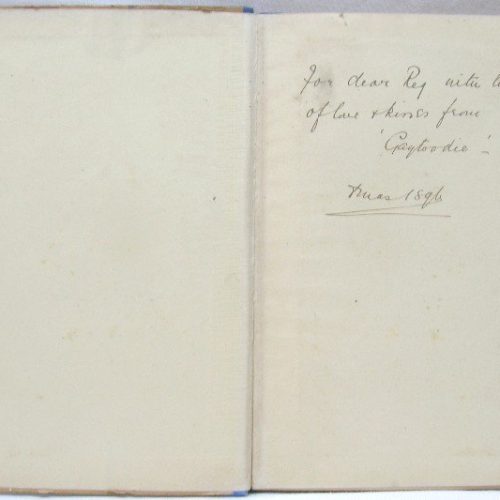 For dear Reg with
of love & kisses from
'Gaytoodie' -
Xmas 1896